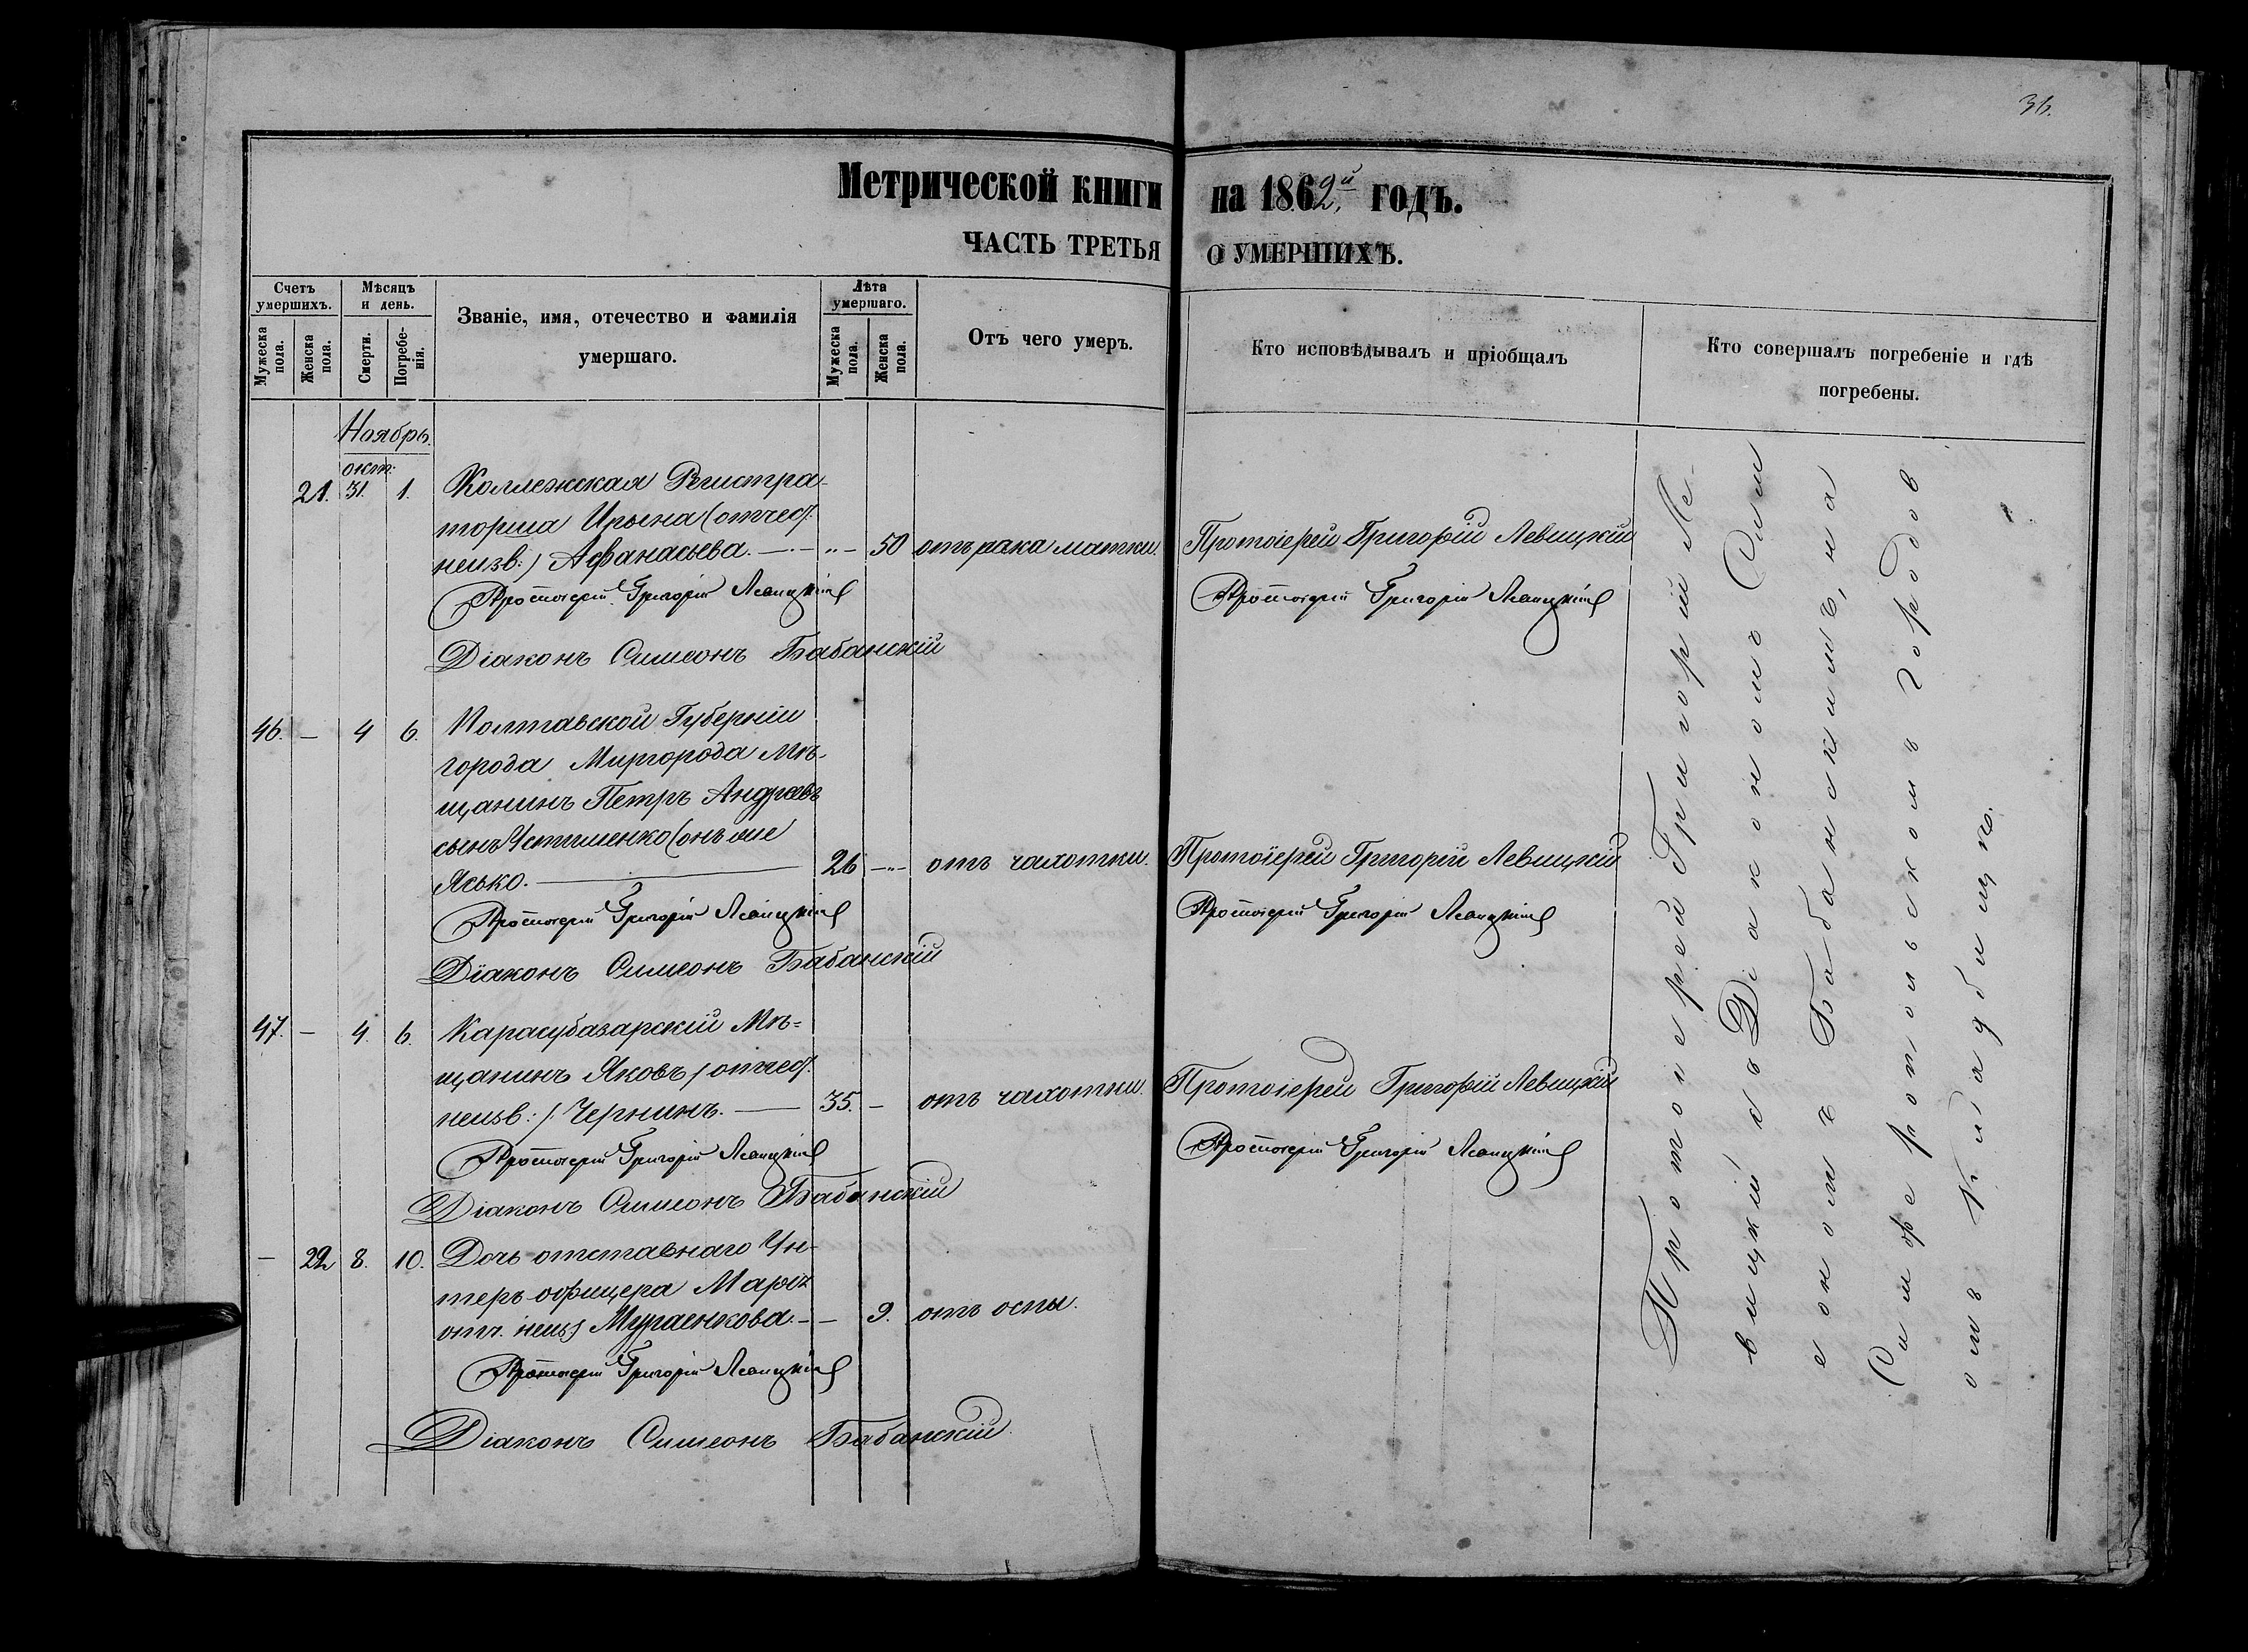 36.
Метрической книги на 1862й годъ.
ЧАСТЬ ТРЕТЬЯ О УМЕРШИХЪ.
Счетъ умершихъ.
Мужеска пола.
Женска пола.
Мѣсяцъ и день.
Смерти.
Погребенія.
Званіе, имя, отечество и фамилія
умершаго.
Лѣта умершаго.
Мужеска пола.
Женска пола.
Отъ чего умеръ.
Кто исповѣдывалъ и пріобщалъ
Кто совершалъ погребеніе и гдѣ
погребены.
Ноябрь.
окт:
21. 31. 1. Коллежская Регистра-
торша Ирына (отчес:
неизв:) Афанасьева. — 50 отъ рака матки. Протоіерей Григорій Левицкій
Протоіерей Григорій Левицкій Протоіерей Григорій Левицкій
Діаконъ Симеонъ Бабанскій
46. — 4 6. Полтавской Губерніи
города Миргорода Мѣ-
щанинъ Петръ Андреевъ
сынъ Устименко (онъ же
Ясько. — 26 — отъ чахотки. Протоіерей Григорій Левицкій
Протоіерей Григорій Левицкій Протоіерей Григорій Левицкій
Діаконъ Симеонъ Бабанскій
47. — 4. 6. Карасубазарскій Мѣ=
щанинъ Яковъ (отчес:
неизв:) Чернинъ. — 35. — отъ чахотки. Протоіерей Григорій Левицкій
Протоіерей Григорій Левицкій Протоіерей Григорій Левицкій
Діаконъ Симеонъ Бабанскій
— 22 8. 10. Дочь отставнаго Ун-
теръ офицера Марія
отч. неиз) — — 9. отъ оспы.
Протоіерей Григорій Левицкій
Діаконъ Симеонъ Бабанскій
Протоіерей Григорий Ле-
вицкій съ Діакономъ Сим
еономъ Бабанскимъ, на
Симферопольскомъ городов
омъ Кладбищѣ.